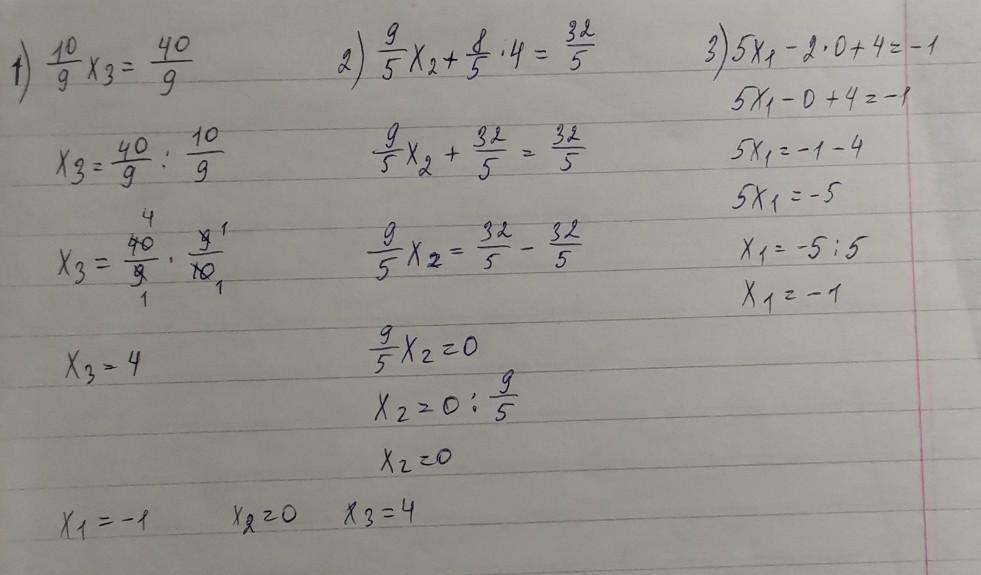 1) 10/9 x₃ = 40/9
x₃ = 40/9 : 10/9
x₃ = 40/9 · 9/10
4 1
1 1
x₃ = 4
2) 9/5 x₂ + 8/5 · 4 = 32/5
9/5 x₂ + 32/5 = 32/5
9/5 x₂ = 32/5 - 32/5
9/5 x₂ = 0
x₂ = 0 : 9/5
x₂ = 0
3) 5x₁ - 2 · 0 + 4 = -1
5x₁ - 0 + 4 = -1
5x₁ = -1 - 4
5x₁ = -5
x₁ = -5 : 5
x₁ = -1
x₁ = -1 x₂ = 0 x₃ = 4